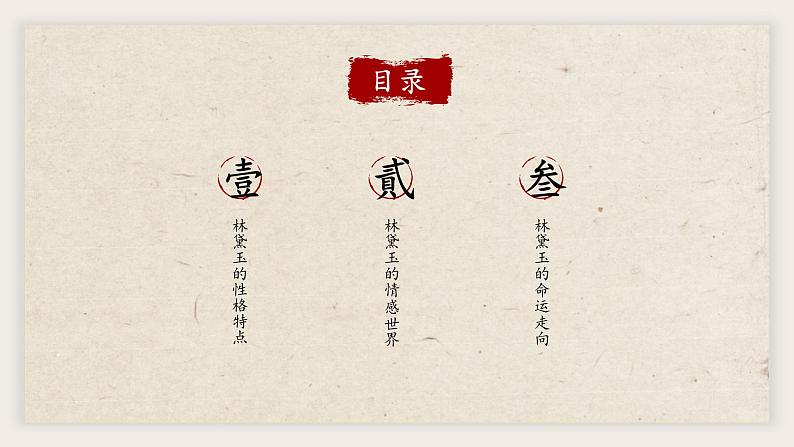 目录
壹
林黛玉的性格特点
貳
林黛玉的情感世界
叁
林黛玉的命运走向